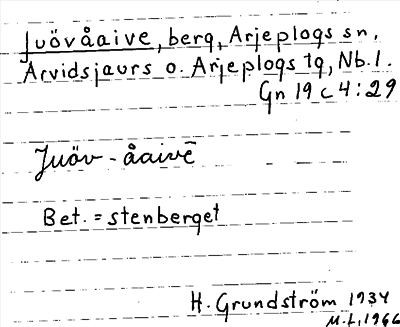 Juövåaive, berg, Arjeplogs sn,
Arvidsjaurs o. Arjeplogs tg, Nb. l.
Gn 19 c 4:29
Juöv-åaivē
Bet. = stenberget
H. Grundström 1934
M.L, 1966